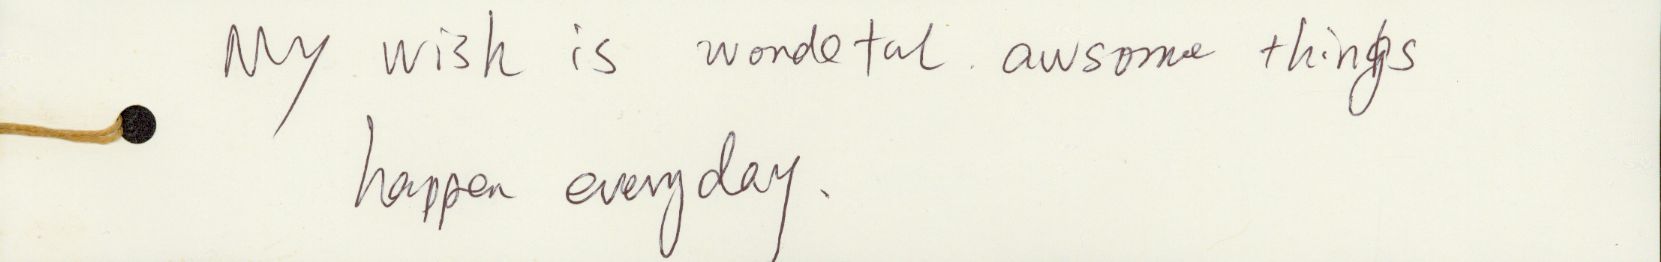 My wish is wondeful. awsome things
happen everyday.